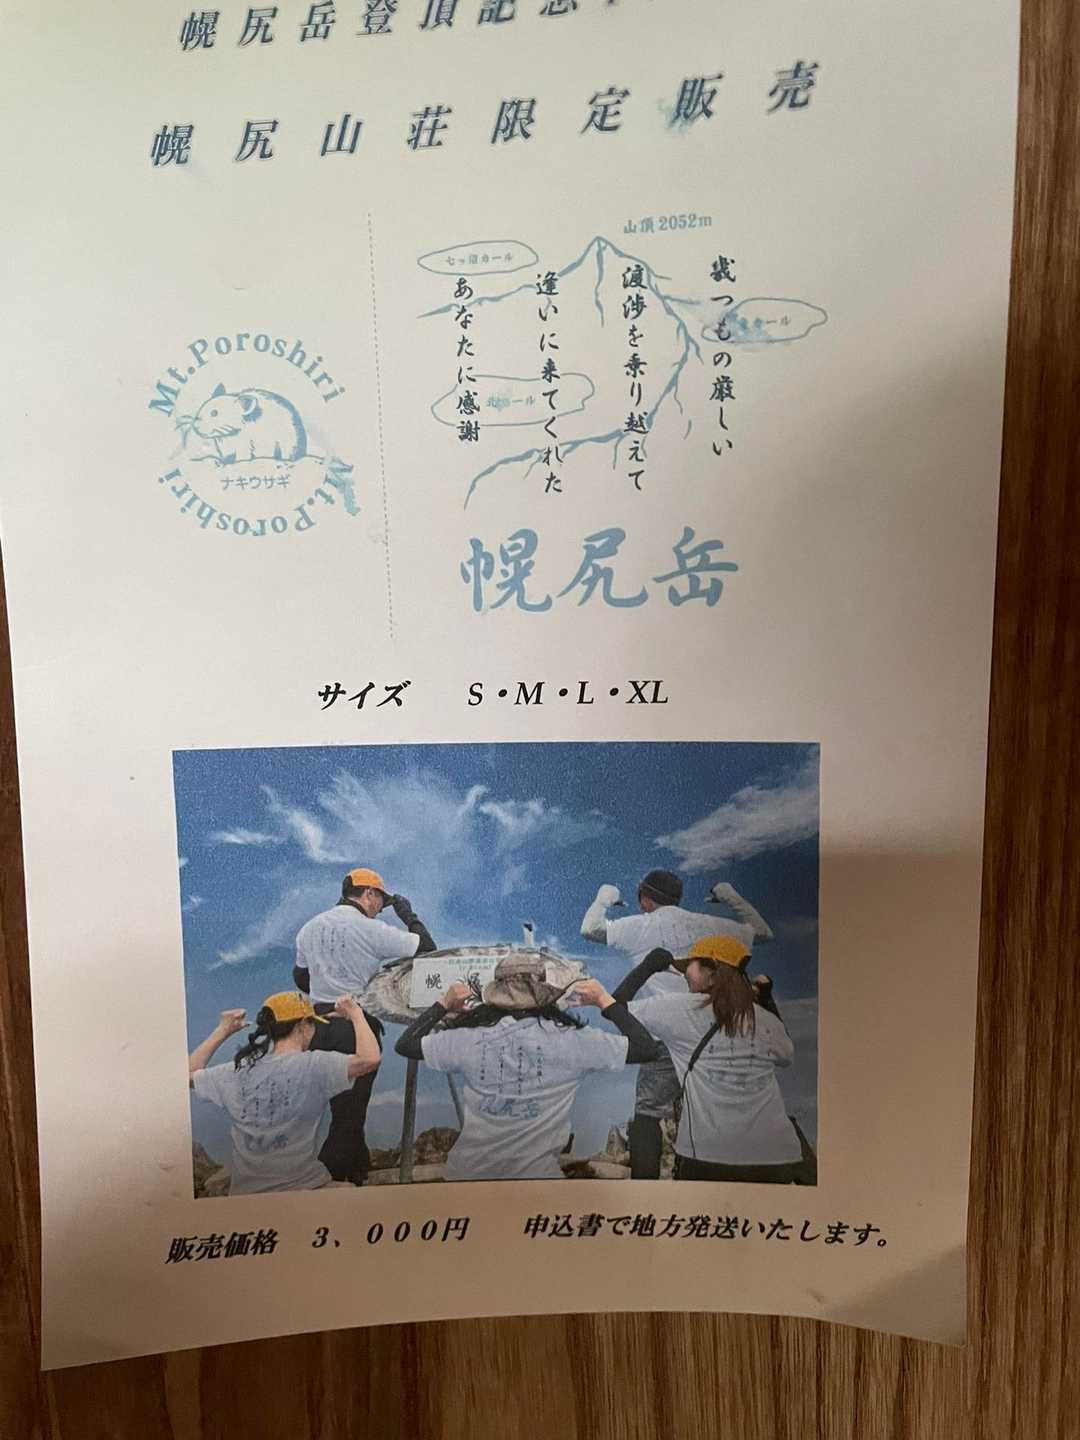 幌尻岳登頂記念
幌尻山荘限定販売
山頂2052m
七つ沼カール
幾つもの厳しい
渡渉を乗り越えて
逢いに来てくれた
あなたに感謝
カール
北カール
幌尻岳
Mt.Poroshiri
ナキウサギ
Mt.Poroshiri
サイズ S・M・L・XL
幌尻
幌尻岳
販売価格 3、000円 申込書で地方発送いたします。